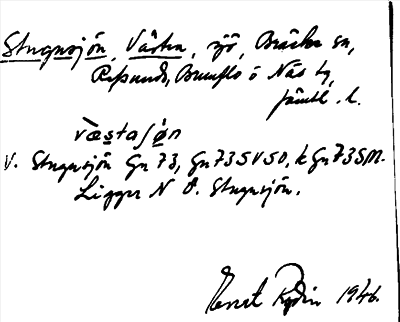 Stugusjön, Västra, sjö, Bräcke sn,
Refsunds, Brunflo o Näs tg,
Jämtl. l.
væstaʃøn
V. Stugusjön Gn 73, Gn 73 SV SO, k Gn 73 SM.
Ligger N Ö. Stugusjön.
Ernst Rydin 1946.